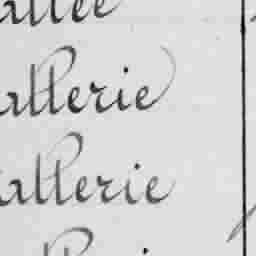 allée
allerie
allerie